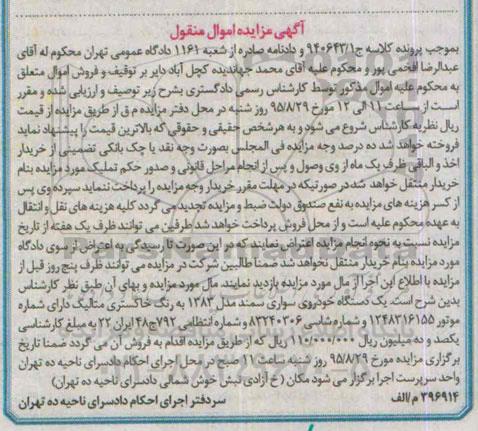 آگهی مزایده اموال منقول
بموجب پرونده کلاسه ج۹۴۰۶۴۳/۱ و دادنامه صادره از شعبه ۱۱۶۱ دادگاه عمومی تهران محکوم له آقای
عبدالرضا افخمی پور و محکوم علیه آقای محمد جهاندیده کچل آباد دایر بر توقیف و فروش اموال متعلق
به محکوم علیه اموال مذکور توسط کارشناس رسمی دادگستری بشرح زیر توصیف و ارزیابی شده و مقرر
است از ساعت ۱۱ الی ۱۲ مورخ ۹۵/۸/۲۹ روز شنبه در محل دفتر مزایده م ق از طریق مزایده از قیمت
ریال نظریه کارشناس شروع می شود و به هرشخص حقیقی و حقوقی که بالاترین قیمت را پیشنهاد نماید
فروخته خواهد شد ده درصد وجه مزایده فی المجلس بصورت وجه نقد یا چک بانکی تضمینی از خریدار
اخذ و الباقی ظرف یک ماه از وی وصول و پس از انجام مراحل قانونی و صدور حکم تملیک مورد مزایده بنام
خریدار منتقل خواهد شد، در صورتیکه در مهلت مقرر خریدار وجه مزایده را پرداخت ننماید سپرده وی پس
از کسر هزینه های مزایده به نفع صندوق دولت ضبط و مزایده تجدید می گردد کلیه هزینه های نقل و انتقال
به عهده محکوم علیه است و از محل فروش پرداخت خواهد شد طرفین می توانند ظرف یک هفته از تاریخ
مزایده نسبت به نحوه انجام مزایده اعتراض نمایند که در این صورت تا رسیدگی به اعتراض از سوی دادگاه
مورد مزایده بنام خریدار منتقل نخواهد شد ضمنا طالبین شرکت در مزایده می توانند ظرف پنج روز قبل از
مزایده با اطلاع این اجرا از مال مورد مزایده بازدید نمایند. مال مورد مزایده و بهای آن طبق نظر کارشناس
بدین شرح است. یک دستگاه خودروی سواری سمند مدل ۱۳۸۳ به رنگ خاکستری متالیک دارای شماره
موتور ۱۲۴۸۳۱۶۱۵۵ و شماره شاسی ۸۳۲۴۰۳۰۶ و شماره انتظامی ۷۹۲ج۴۸ ایران ۲۲ به مبلغ کارشناسی
یکصد و ده میلیون ریال ۱۱۰/۰۰۰/۰۰۰ ریال که از طریق مزایده اقدام به فروش آن می گردد ضمنا تاریخ
برگزاری مزایده مورخ ۹۵/۸/۲۹ روز شنبه ساعت ۱۱ صبح در محل اجرای احکام دادسرای ناحیه ده تهران
واحد سرپرست اجرا برگزار می شود مکان (خ آزادی نبش خوش شمالی دادسرای ناحیه ده تهران)
۳۹۶۹۱۴ م/الف سردفتر اجرای احکام دادسرای ناحیه ده تهران